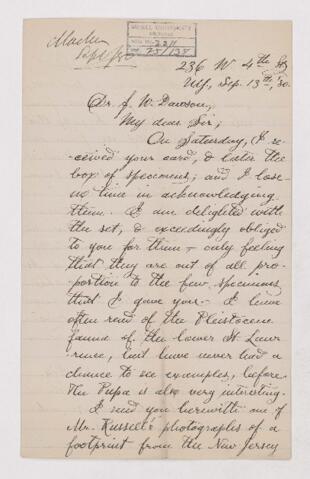 McGILL UNIVERSITY
ARCHIVES
ACC. NO. 2211
REF. 25/138
Sept/80
236 W 4th St,
NY, Sep. 13th, 80.
Dr. J. W. Dawson,
My dear Sir;
On Saturday, I re-
ceived your card, & later the
box of specimens; and I lose
no time in acknowledging
them. I am delighted with
the set, & exceedingly obliged
to you for them - only feeling
that they are out of all pro-
portion to the few specimens
that I gave you. I have
often read of the Pleistocene
fauna of the lower St. Law-
rence, but have never had a
chance to see examples, before.
The Pupa is also very interesting.
I send you herewith one of
Mr. Russell's photographs of a
footprint from the New Jersey